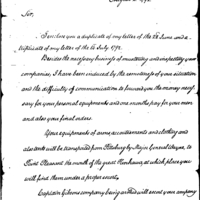 Sir,
I enclose you a duplicate of my letter of the 28 June and a
triplicate of my letter of the 6 July 1792.
Besides the necessary business of mustering and inspecting your
companies, I have been induced by the remoteness of your situation
and the difficulty of communication to forward you the money neces
sary for your personal equipments and one months pay for your men
and also your final orders.
Your equipments of arms accoutrements and clothing and
also tents will be transported from Pittsburg by Major General Wayne, to
Point Pleasant the mouth of the great Kenhawa at which place you
will find them under a proper escort.
Captain Gibsons company being armed will escort your company